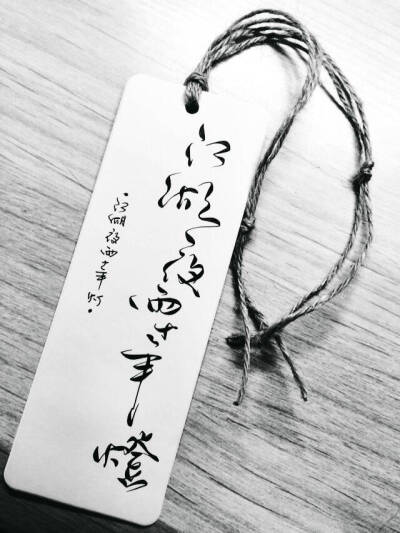 江湖夜雨十年燈
·江湖夜雨十年灯·